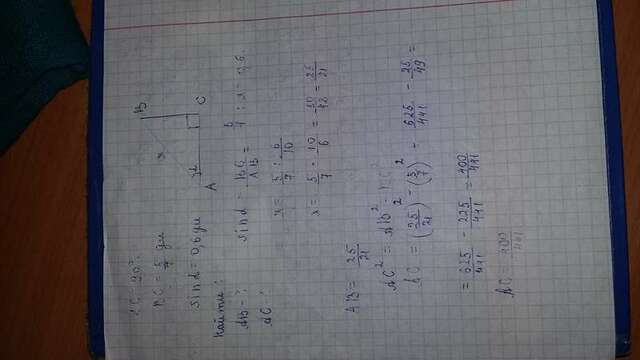 ∠C = 90°
BC = 5/7 дм
sin α = 0,6 дм
Найти:
AB - ?
AC
B
x
C
α
A
sin α = BC/AB = 5/7 : x = 0,6
x = 5/7 : 6/10
x = 5/7 · 10/6 = 50/42 = 25/21
AB = 25/21
AC² = AB² - BC²
AC = (25/21)² - (5/7)² = 625/441 - 25/49 =
= 625/441 - 225/441 = 400/441
AC = 400/441